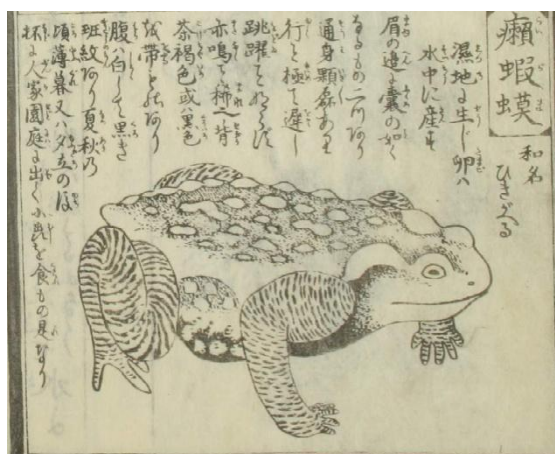 癩蝦蟆
和名
ひきがへる
濕地に生じ卵ハ
水中に産す
眉の邊に嚢の如く
なるもの二ツあり
通身顆磊あり
行と極て遅し
跳躍
亦鳴稀也背
茶褐色或ハ黒色
を帯ものあり
腹ハ白して黒き
斑紋あり夏秋乃
頃薄暮又ハ夕立の
抔に人家園庭に出て小蟲を食もの是なり